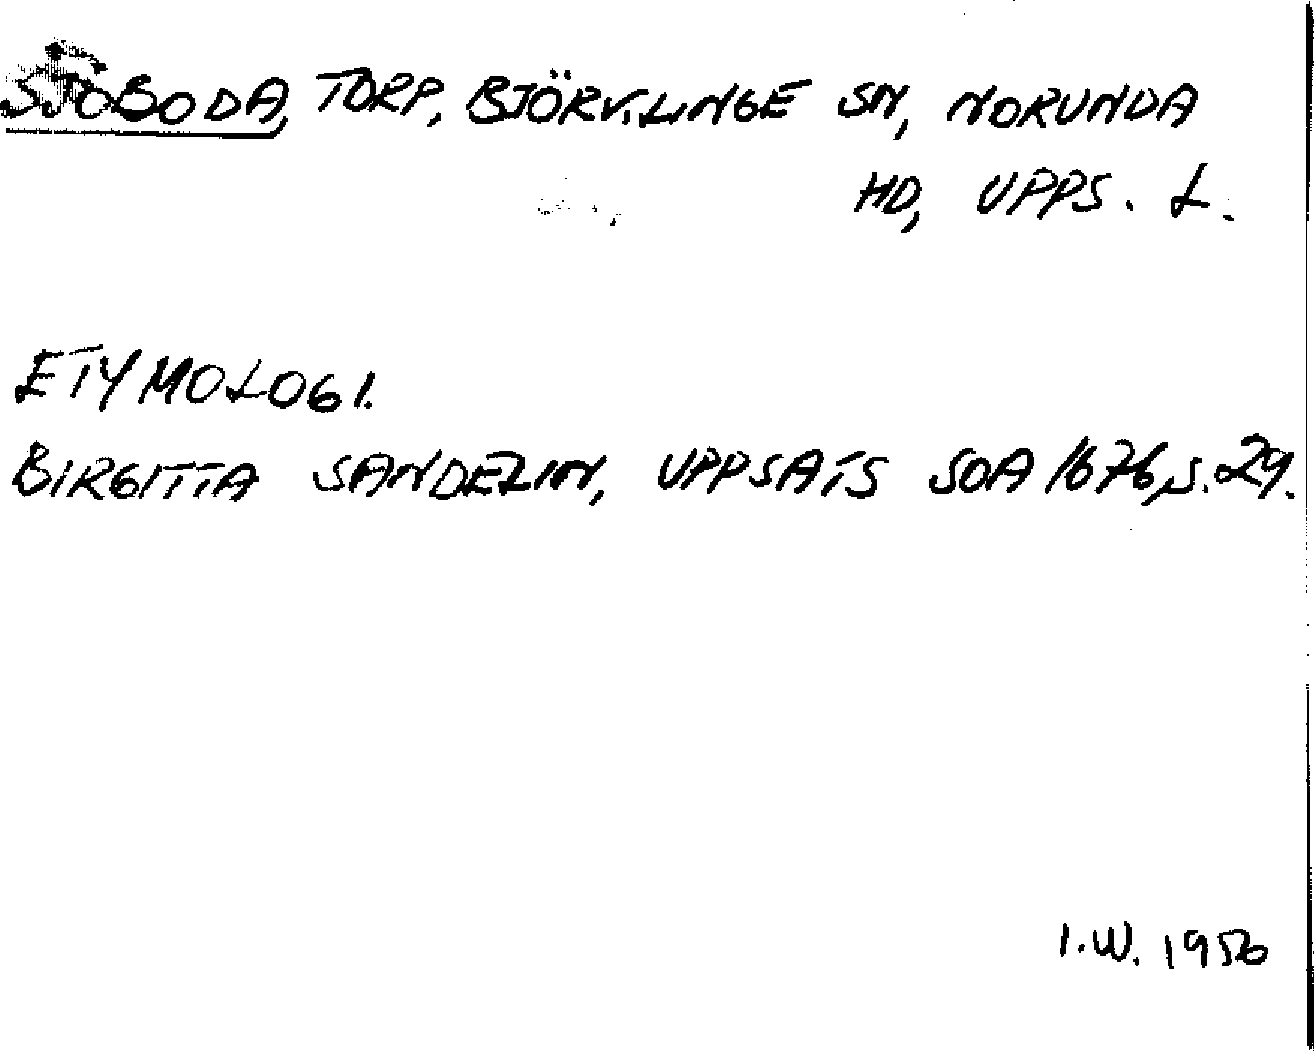 SJÖBODA, TORP, BJÖRKLINGE SN, NORUNDA
HD, UPPS. L.
ETYMOLOGI.
BIRGITTA SANDELIN, UPPSATS SOA 1676, S. 29.
I.W. 1956